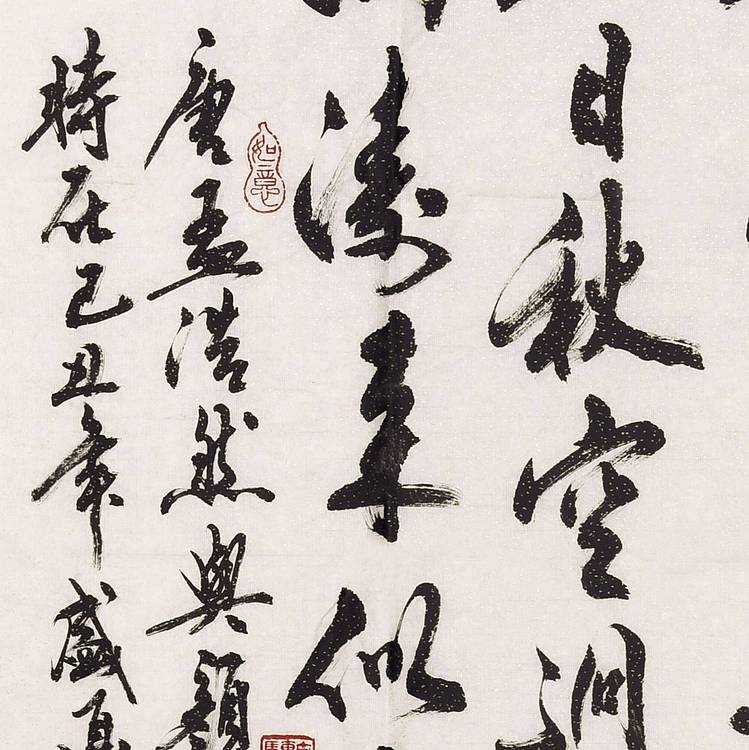 日秋空迥
濤来似
如意
唐孟浩然與顏
時在己丑年盛夏